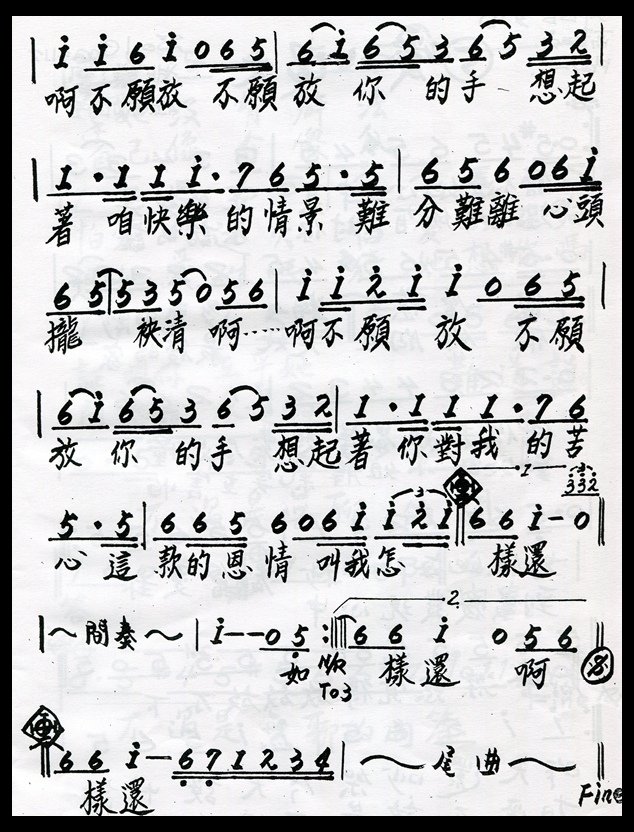 | i i 6 i 0 6 5 | 6 i 6 5 3 6 5 3 2
啊不願放 不願放 你 的手 想起
| 1 · 1 1 i · 7 6 5 · 5 | 6 5 6 0 6 i
著 咱快樂的情景 難 分難離 心頭
6 5 | 5 3 5 0 5 6 | i i 2 i i 0 6 5 |
攏 袂清 啊……啊不願 放 不願
| 6 i 6 5 3 6 5 3 2 | 1 · 1 1 1 · 7 6
放 你 的手 想起著 你對我 的苦
1
3 3 2
5 · 5 | 6 6 5 6 0 6 i i 2 i || 6 6 i - 0 ||
3
心 這 款的恩情 叫我怎 樣還
2.
| ～ 間奏 ～ | i - - 0 5 :|| 6 6 i 0 5 6 ||
如 樣還 啊
To 3
|| 6 6 i - 6 7 1 2 3 4 | ～ 尾曲 ～ ||
樣還 Fine